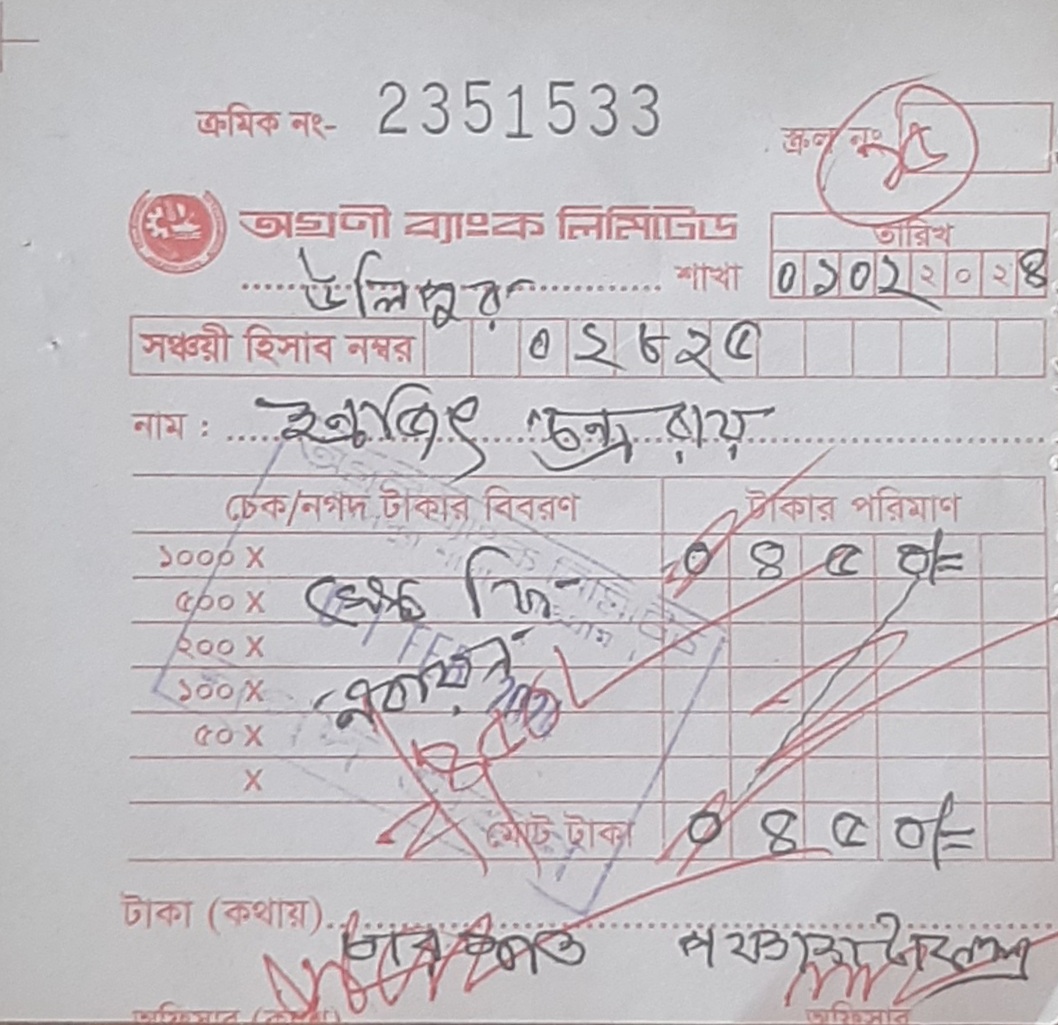 ক্রমিক নং- 2351533
স্ক্রল নং ৫
অগ্রণী ব্যাংক লিমিটেড
তারিখ
উলিপুর শাখা ০১০২২০২৪
সঞ্চয়ী হিসাব নম্বর ০২৮২৫
নাম : ইন্দ্রজিৎ চন্দ্র রায়
চেক/নগদ টাকার বিবরণ টাকার পরিমাণ
১০০০ X ০৪৫০/=
৫০০ X ফি
২০০ X
১০০ X
৫০ X ৪৫০
X
মোট টাকা ০৪৫০/=
টাকা (কথায়) চারশত পঞ্চাশ টাকা মাত্র
অফিসার (ক্যাশ) অফিসার